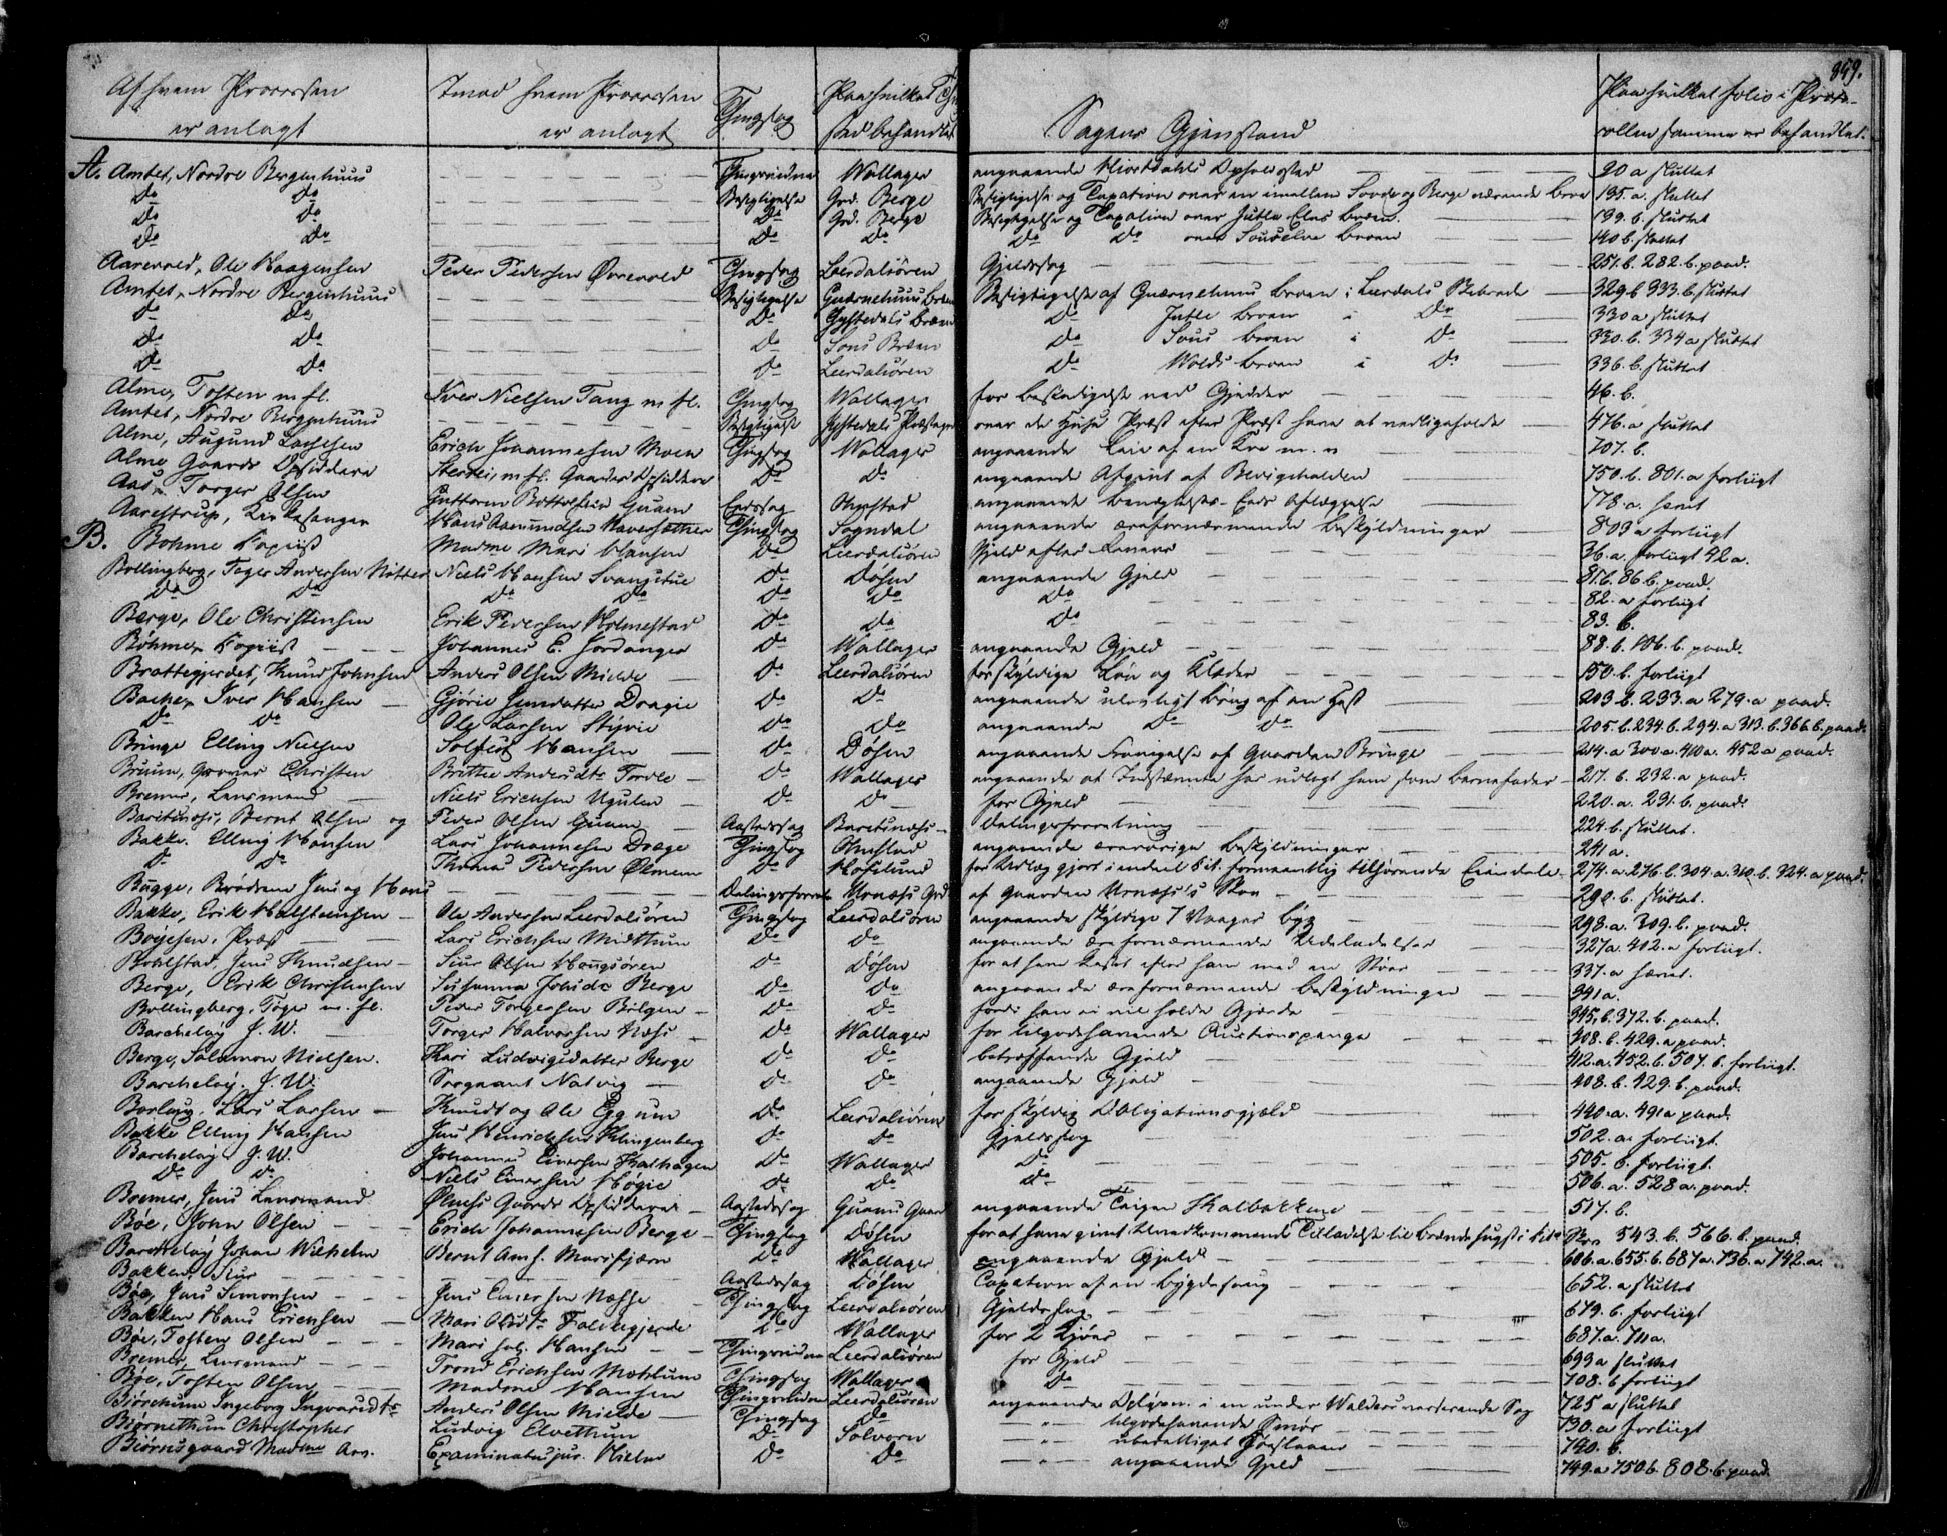 859.
Af hvem Processen er anlagt | Imod hvem Processen er anlagt | Thingslag | Paa hvilket Thingsted behandlet | Sagens Gjenstand | Paa hvilket folio i Protocollen samme er behandlet.
A. Amtet, Nordre Bergenhuus | Thingsvidne | Wollager | angaaende Hiortdahls Opholdssted | 20 a sluttet
Do Do | Besigtigelse | Grd. Berge | Besigtigelse og Taxation over en imellem Sovde og Berge værende Broe | 135. a. sluttet
Do Do | Do | Grd. Berge | Besigtigelse og Taxation over Jutle Elvs Broen. | 139. b. sluttet
Do Do | Do | Do | Do Do over Sous Elve Broen | 140 b. sluttet
Aarevold, Ole Haagensen | Peder Pedersen Ørrevold | Thingslag | Leerdalsören | Gjeldssag | 251. b. 282. b. paad.
Amtet, Nordre Bergenhuus | Besigtigelse | Qværnehuus Broen | Besigtigelse af Qværnehuus Broen i Lærdals Bebrede | 329 b 333. b. sluttet
Do Do | Do | Jystedals Broen | Do Jutle Broen i Do | 330 a sluttet
Do Do | Do | Sous Broen | Do Sous Broen i Do | 330. b. 334 a sluttet
Do Do | Do | Leerdalsören | Do Wolds Broen i Do | 336. b. sluttet
Alme, Tosten m fl. | Iver Nielsen Tang m fl. | Thingslag | Wollager | for Beskadigelse ved Gjedder | 46. b.
Amtet, Nordre Bergenhuus | Besigtigelse | Jystedals Præstegrd | over de Huse Præst efter Præst have at vedligeholde | 476. a sluttet
Alme, Augund Larsen | Erich Johannesen Moen | Thingslag | Wollager | angaaende Leie af en Koe m. v | 707. b.
Alme Gaards Opsiddere | m. fl. Gaardes Opsiddere | Do | Do | angaaende Afgivt af Bevigtholden | 750. b. 801. a forliigt
Aas, Torger Olsen | Guttorm Bottolfsen Qvam | Eedssag | Ohnstad | angaaende Benægtelses-Eeds Aflæggelse | 778. a. hævet
Aarestrup, Kirkesanger | Hans Aamundsen Haversætter | Thingslag | Sogndal | angaaende ærefornærmende Beskyldninger | 803 a forliigt
B. Bohme Kopiist | Madme Mari Hansen | Do | Leerdalsören | Gjeld efter | 36. a. forliigt 42 a.
Bollingberg, Toger Andersen Ritter | Niels Hansen Svangstue | Do | Dösen | angaaende Gjeld | 81. b. 86 b. paad.
Do Do | Do Do | Do | Do | Do | 82. a forliigt
Berge, Ole Christensen | Erik Pedersen Holmestad | Do | Do | Do | 83. b.
Böhme, Kopiist | Johannes E. Jordanger | Do | Wollager | angaaende Gjeld | 88. b. 106. b. paad.
Brattegjerdet, Knud Johnsen | Anders Olsen Mielde | Do | Leerdalsören | for skyldige Lön og Klæder | 150. b. forliigt
Bache, Iver Hansen | Gjörie Jensdatter Drægie | Do | Do | angaaende ulovligt Brug af en Hest | 203 b. 233. a 279. a paad.
Do Do | Ole Larsen Styvie | Do | Do | angaaende Do Do | 205. b. 234 b. 294. a 313. b. 366 b. paad.
Bringe Elling Nielsen | Hansen | Do | Dösen | angaaende Fravigelse af Gaarden Bringe | 214. a 300 a. 410 a. 452 a paad.
Bruun, Christen | Brithe Andersdtr Tordle | Do | Wollager | angaaende at Indstævnte har udlagt ham som Barnefader | 217. b. 232. a paad.
Bremer, Lensmand | Niels Erichsen Ugulen | Do | Do | for Gjeld | 220. a. 231. b. paad.
Baretsnæss, Bernt Olsen og | Peder Olsen Qvam | Aastedssag | Baretsnæss | Delingsforretning | 224 b. sluttet.
Bakke, Elling Hansen | Lars Johannesen Drege | Thingslag | Ohnstad | angaaende ærerørige Beskyldninger | 241 a.
Do Do | Thomas Pedersen Ølmeim | Do | Hofslund | for Udlæg gjort i endeel Cit. formeentlig tilhørende Eiendele | 274. a 276. b. 304. a 310. b. 324. a paad.
Bugge, Brødrene Jens og Hans | Delingsforretn | Urnæss Grd | af Gaarden Urnæss's Skov | 292. b. sluttet.
Bakke, Erik Halsteinsen | Ole Andersen Leerdalsören | Thingslag | Leerdalsören | angaaende skyldige 7 Vaager Byg | 298. a. 309. b. paad.
Boyesen, Præst | Lars Erichsen Midthun | Do | Do | angaaende ærefornærmende Udeladelser | 327 a. 402. a forliigt.
Bolstad, Jens Knudsen | Siur Olsen Haugsören | Do | Dösen | for at have kastet efter ham med en Stöer | 337. a hævet.
Berge, Erik Christensen | Susanna Johnsdr Berge | Do | Do | angaaende ærefornærmende Beskyldninger | 341 a.
Bollingberg, Toger m. fl. | Peder Torgersen Bolgen | Do | Do | fordi han ei vil holde Gjerde | 345. b. 372. b. paad.
Barcheley J. W. | Torger Halvorsen Næss | Do | Wollager | for tilgodehavende Auctionspenge | 408. b. 429. a paad.
Berge, Salamon Nielsen. | Kari Ludvigsdatter Berge | Do | Do | betræffende Gjeld | 412. a. 452. b. 507. b. forliigt.
Barcheley. J. W. | Sergeant Natvig | Do | Do | angaaende Gjeld | 408. b. 429. b. paad.
Borlaug, Lars Larsen | Knudt og Ole Eggum | Do | Leerdalsören | for skyldig Obligationsgjæld | 440. a. 491 a paad.
Bakke Elling Hansen | Jens Henrichsen Klingenberg | Do | Do | Gjeldssag | 502. a. forliigt.
Barcheley J. W. | Johannes Einersen Kalhagen | Do | Wollager | Do | 505. b. forliigt.
Do Do | Niels Einersen Högie | Do | Do | Do | 506. a. 528 a. paad.
Bremer, Jens Lensmand | Gaards Opsiddere | Aastedssag | Qvams Gaard | angaaende Teigen Skalbakkene | 517. b.
Böe, John Olsen | Erich Johannesen Berge | Thingslag | Dösen | for at have givet Uvedkommende Tilladelse til Brændehugst i Cit. Skov | 543. b. 566. b. paad.
Barcheley Johan Wilhelm | Bernt Amh. Marifjæren | Do | Wollager | angaaende Gjeld | 606. a. 655. b. 687 a. 736. a 742. a.
Bakken, Siur | Aastedssag | Dösen | Taxation af en Bygdesaug | 652. a sluttet
Böe, Jens Simonsen | Jens Einersen Næsse | Thingslag | Leerdalsören | Gjeldssag | 679. b. forliigt
Bakken Hans Erichsen | Mari Olsdtr | Do | Wollager | for 2 Kjöer | 687. a. 711 a.
Böe, Tosten Olsen | Mari sal. Hansen | Thingsvidne | Leerdalsören | for Gjeld | 699 a sluttet
Bremer, Lensmand | Trond Erichsen Mohlum | Thingslag | Wollager | Do | 708. b forliigt
Böe, Tosten Olsen | Madme Hansen | Thingsvidne | Leerdalsören | angaaende i en under Walders værserende Sag | 725 a sluttet
Björchum Ingeborg Ingvarsdtr | Anders Olsen Mielde | Thingslag | Do | tilgodehavende Smör | 730. a forliigt
Björnethun Christopher | Ludvig Elvethun | Do | Solvorn | ubetalligt | 740. b.
Björnsgaard Madme Ars. | Examinatusjur. Hielm | Do | Do | angaaende Gjeld | 749. a 750 b. 808. b. paad.